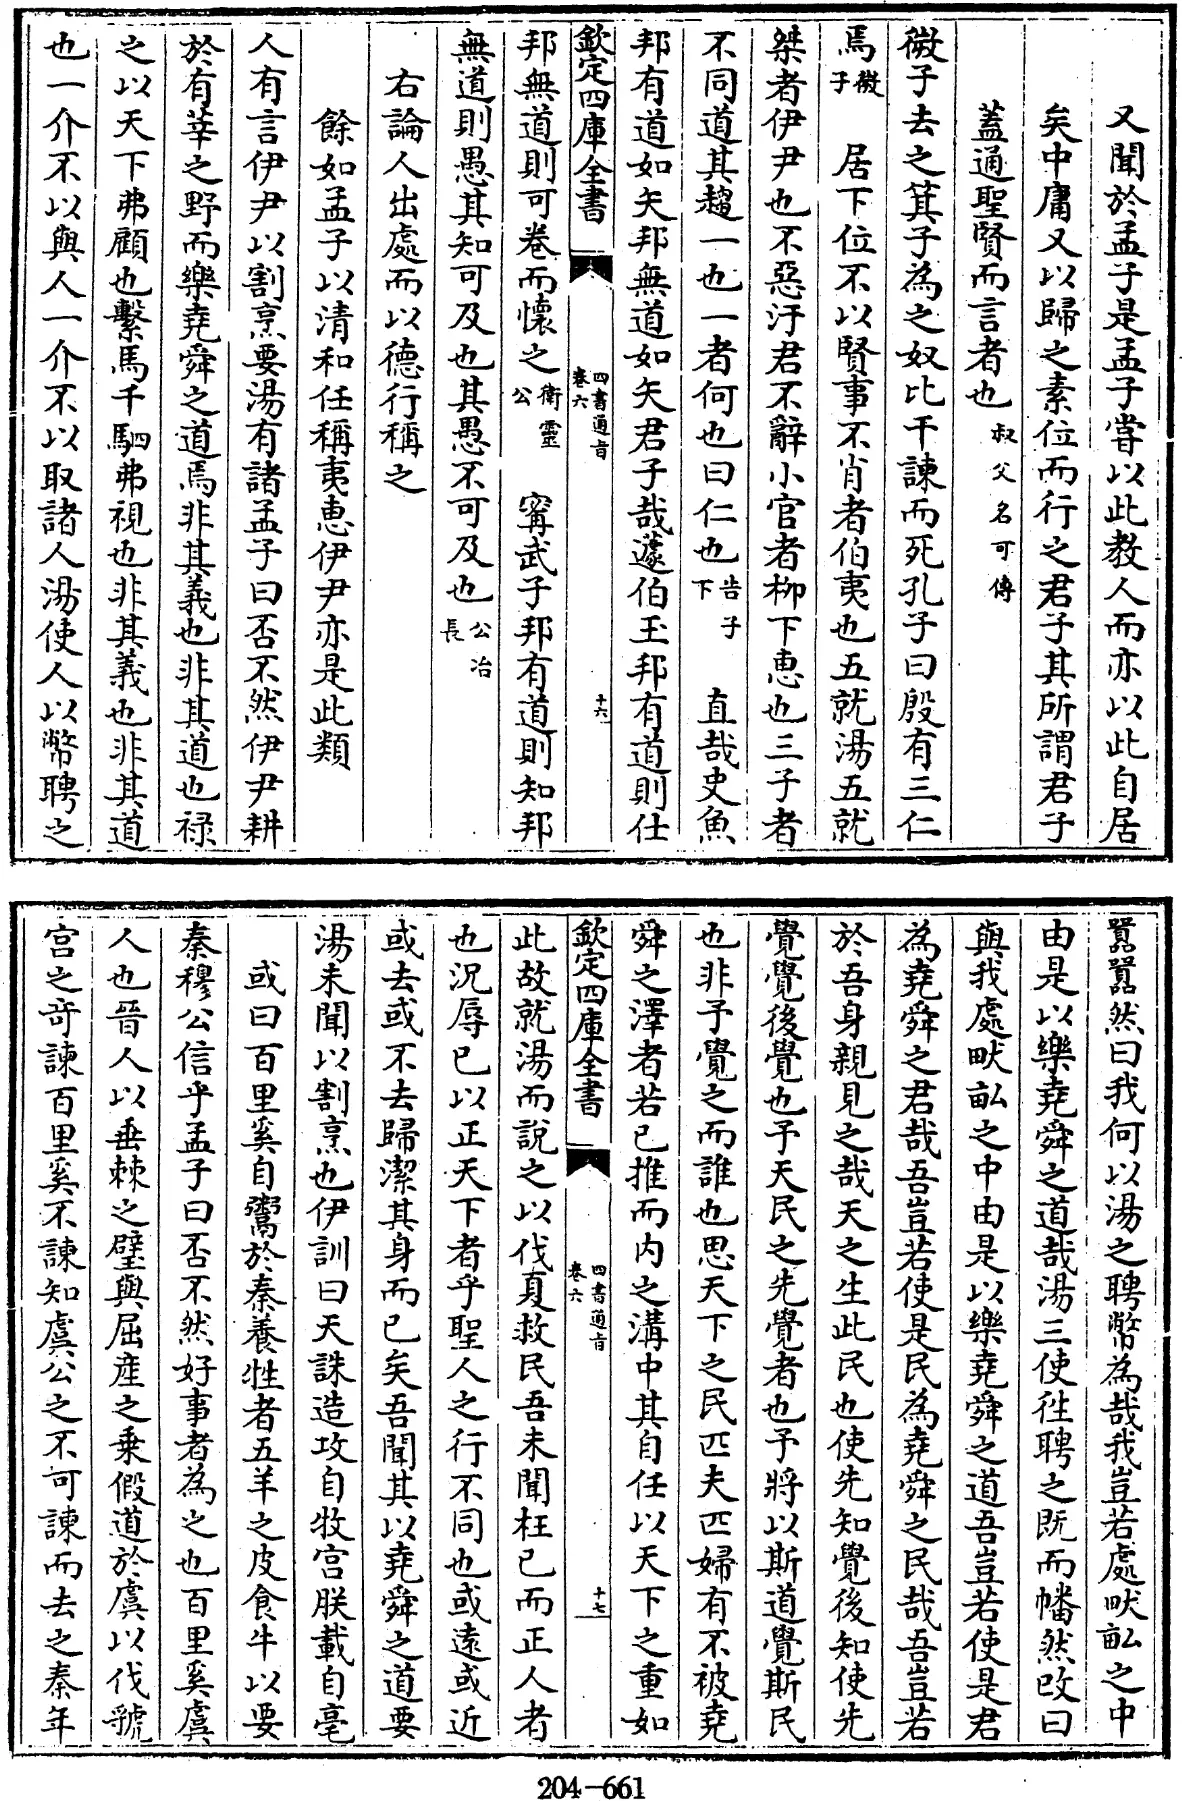 又聞於孟子是孟子嘗以此教人而亦以此自居
矣中庸又以歸之素位而行之君子其所謂君子
蓋通聖賢而言者也叔父名可傳
微子去之箕子為之奴比干諫而死孔子曰殷有三仁
焉微子 居下位不以賢事不肖者伯夷也五就湯五就
桀者伊尹也不惡汙君不辭小官者栁下惠也三子者
不同道其趨一也一者何也曰仁也告子下 直哉史魚
邦有道如矢邦無道如矢君子哉蘧伯玉邦有道則仕
欽定四庫全書 四書通旨 卷六 十六
邦無道則可卷而懷之衛靈公 寗武子邦有道則知邦
無道則愚其知可及也其愚不可及也公冶長
右論人出處而以德行稱之
餘如孟子以清和任稱夷惠伊尹亦是此類
人有言伊尹以割烹要湯有諸孟子曰否不然伊尹耕
於有莘之野而樂堯舜之道焉非其義也非其道也祿
之以天下弗顧也繫馬千駟弗視也非其義也非其道
也一介不以與人一介不以取諸人湯使人以幣聘之
囂囂然曰我何以湯之聘幣為哉我豈若處畎畝之中
由是以樂堯舜之道哉湯三使徃聘之既而幡然改曰
與我處畎畝之中由是以樂堯舜之道吾豈若使是君
為堯舜之君哉吾豈若使是民為堯舜之民哉吾豈若
於吾身親見之哉天之生此民也使先知覺後知使先
覺覺後覺也予天民之先覺者也予將以斯道覺斯民
也非予覺之而誰也思天下之民匹夫匹婦有不被堯
舜之澤者若己推而内之溝中其自任以天下之重如
欽定四庫全書 四書通旨 卷六 十七
此故就湯而說之以伐夏救民吾未聞枉己而正人者
也況辱己以正天下者乎聖人之行不同也或遠或近
或去或不去歸潔其身而已矣吾聞其以堯舜之道要
湯未聞以割烹也伊訓曰天誅造攻自牧宮朕載自亳
或曰百里奚自鬻於秦養牲者五羊之皮食牛以要
秦穆公信乎孟子曰否不然好事者為之也百里奚虞
人也晉人以垂棘之璧與屈產之乗假道於虞以伐虢
宮之奇諫百里奚不諫知虞公之不可諫而去之秦年
204-661